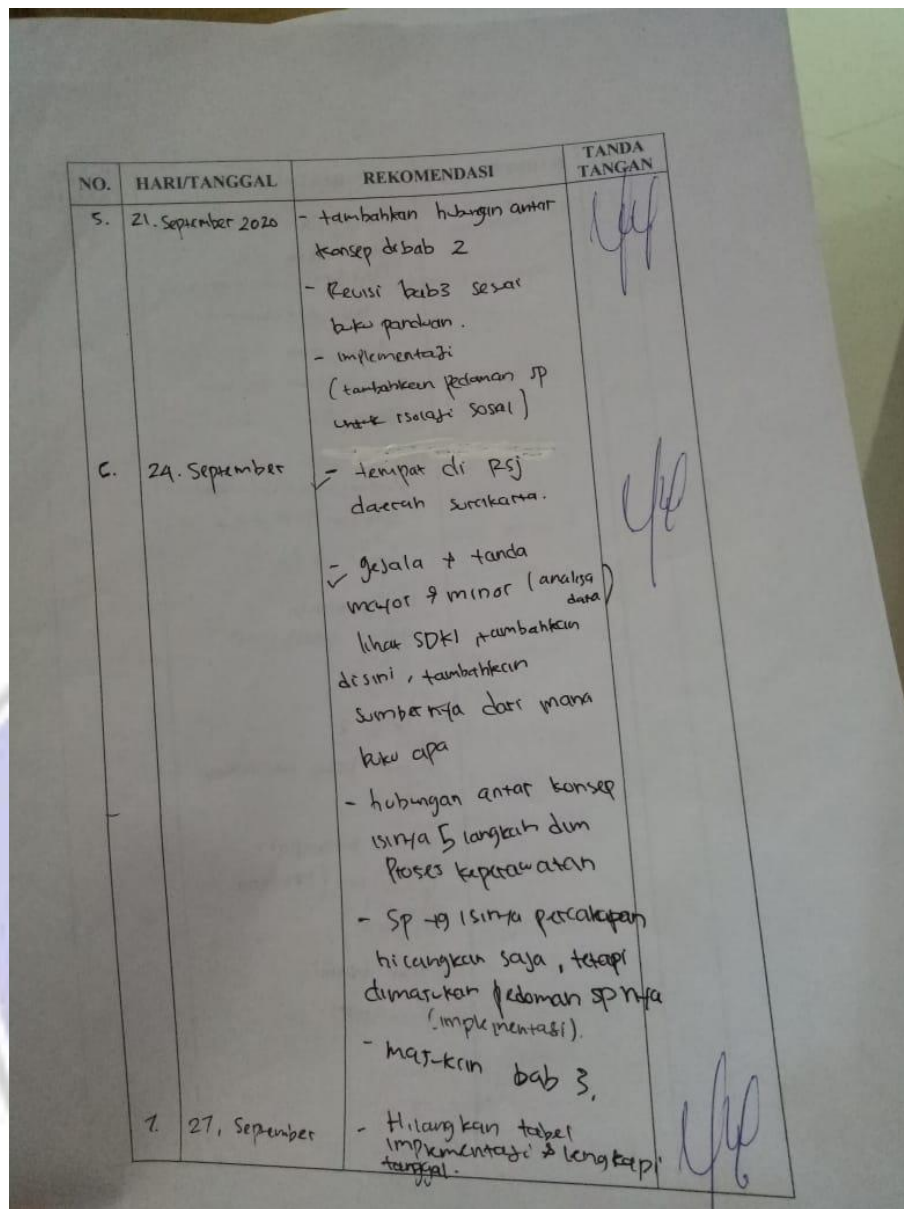 NO. HARI/TANGGAL REKOMENDASI TANDA TANGAN
5. 21. September 2020 - tambahkan hubungin antar
konsep di bab 2
- Revisi bab3 sesuai
buku panduan.
- implementasi
(tambahkan pedoman sp
untuk isolasi sosal)
6. 24. September - tempat di Rsj
daerah surakarta.
- gejala + tanda
mayor & minor (analisa data)
lihat SDKI, tambahkan
disini, tambahkan
sumbernya dari mana
buku apa
- hubungan antar konsep
isinya 5 langkah dlm
Proses keperawatan
- Sp yg isinya percakapan
hilangkan saja, tetapi
dimasukan pedoman sp nya
(implementasi).
- masukan bab 3.
7. 27, September - Hilangkan tabel
implementasi & lengkapi
tanggal.